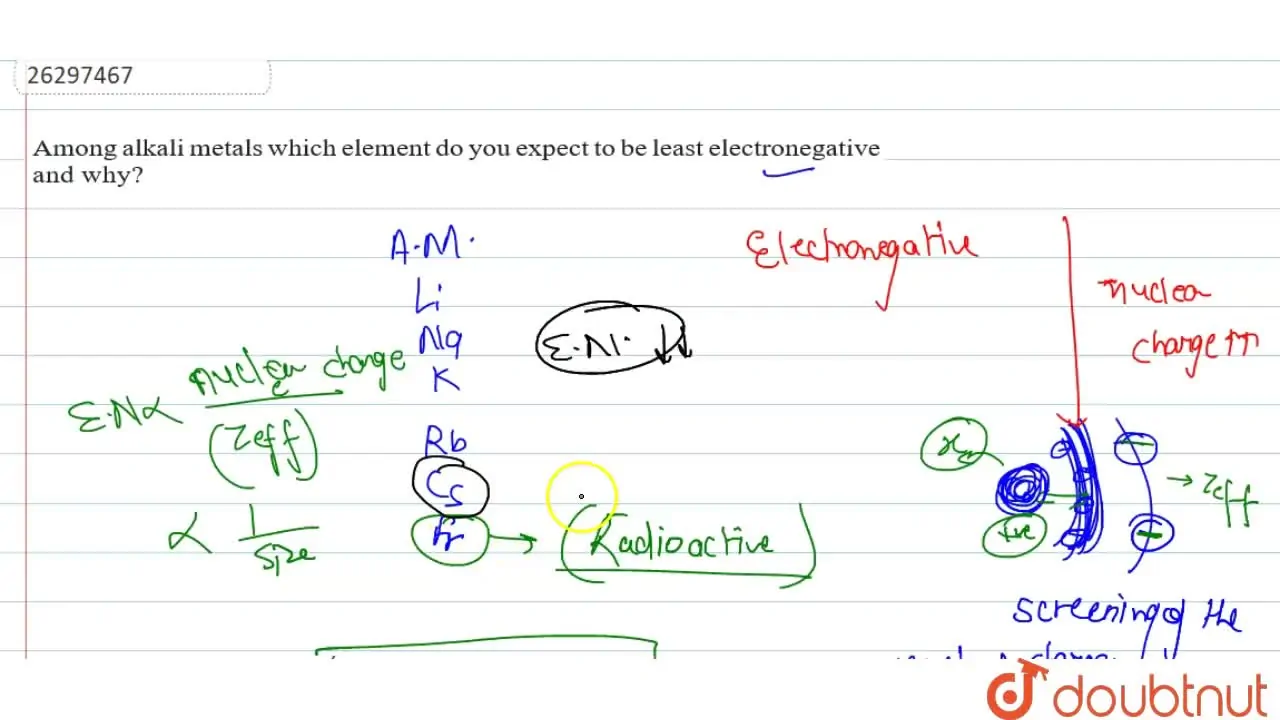 26297467
Among alkali metals which element do you expect to be least electronegative
and why?
A.M.
Electronegative
Li
nuclear
charge ↑↑
Na
E.N. ↓↓
nuclear charge
K
E.N ∝
(Zeff)
Rb
Cs
→ Zeff
∝ 1
size
Fr → (Radioactive)
+ve
Screening of the
doubtnut